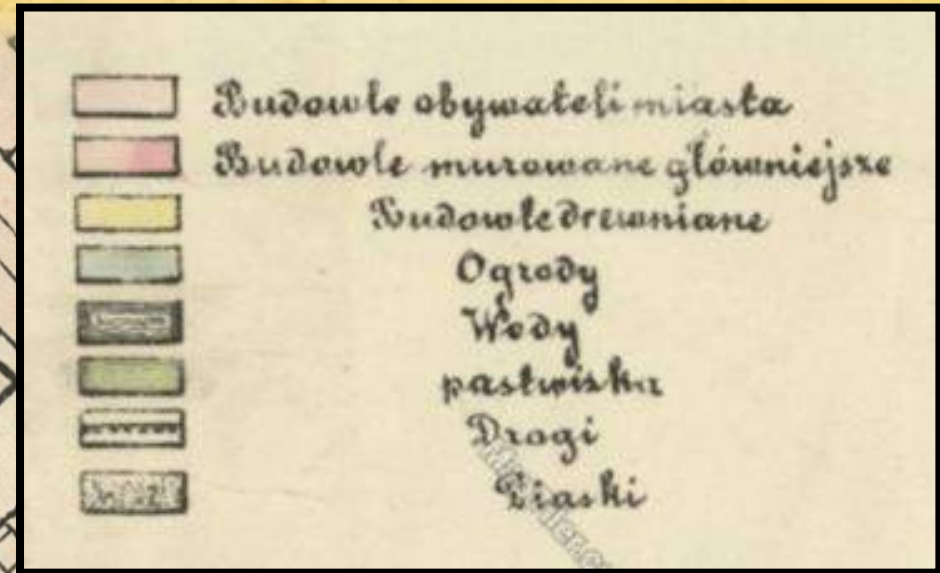 Budowle obywateli miasta
Budowle murowane główniejsze
Budowle drewniane
Ogrody
Wody
pastwiska
Drogi
Piaski